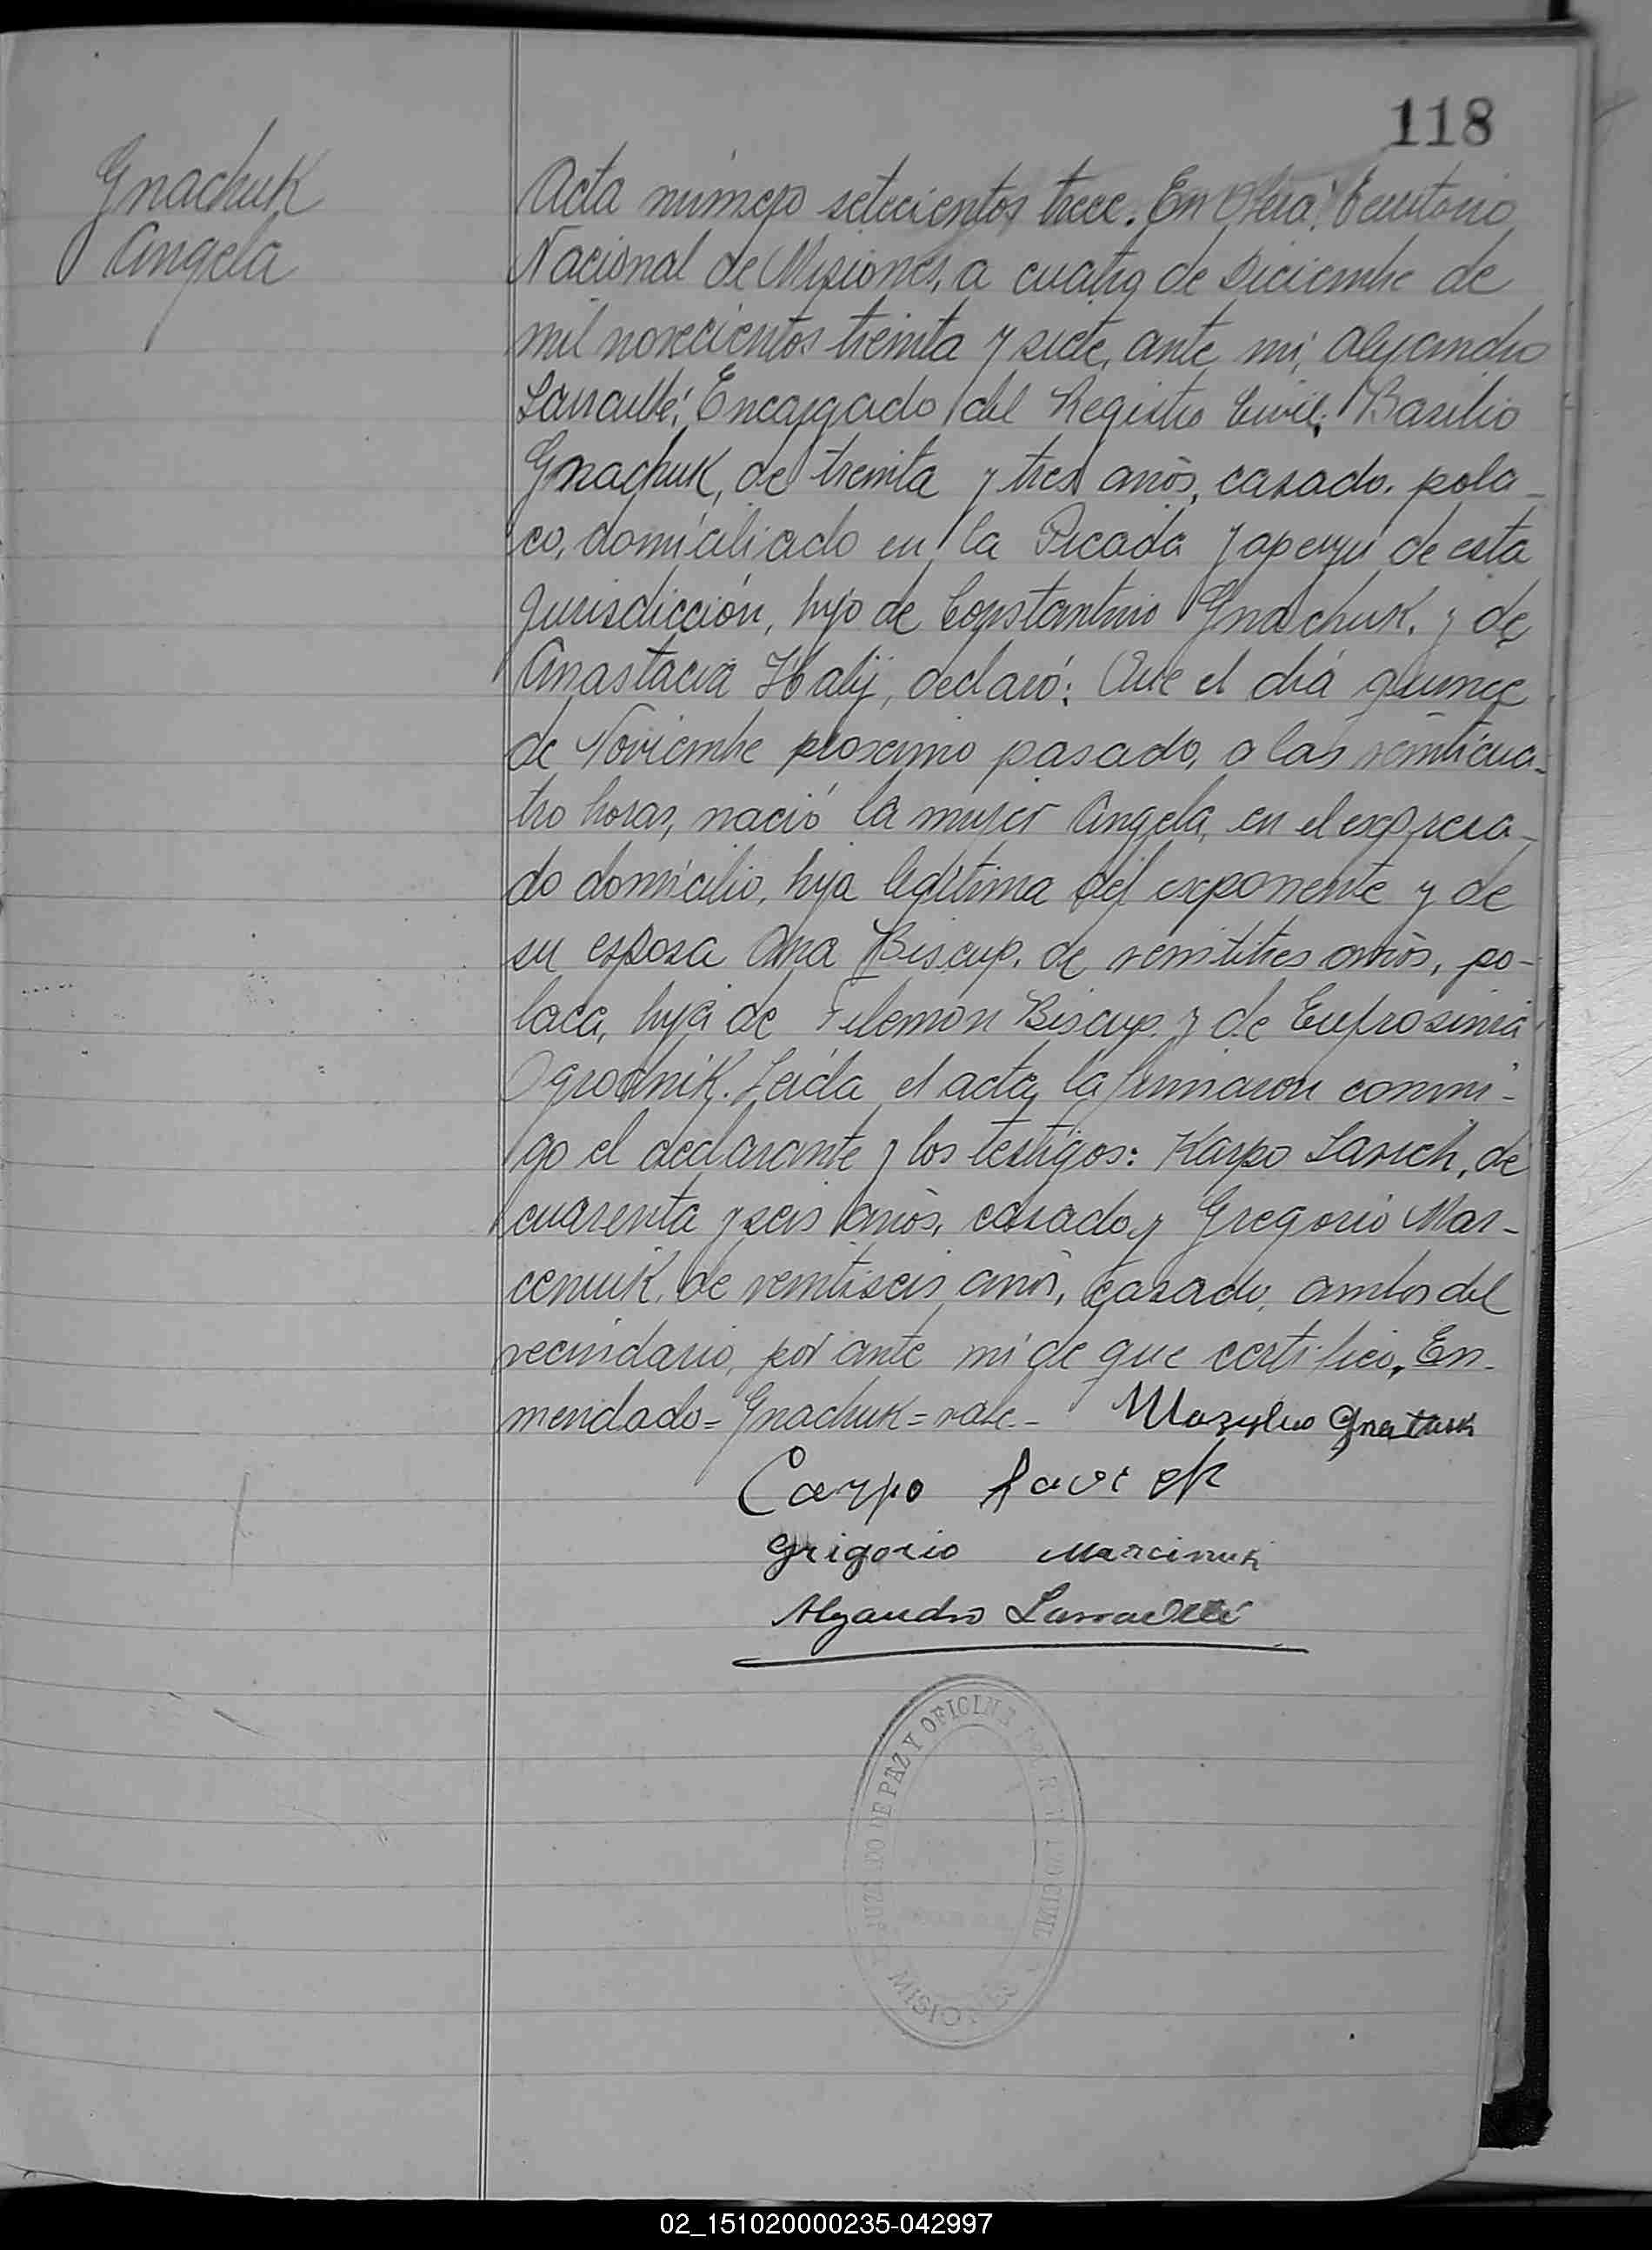 118
Gnachuk
Angela
Acta número setecientos trece. En Oberá, Territorio
Nacional de Misiones, a cuatro de Diciembre de
mil novecientos treinta y siete, ante mi, Alejandro
Encargado del Registro Civil; Basilio
Gnachuk, de treinta y tres años, casado, pola-
co, domiciliado en la Picada Yapeyú de esta
jurisdicción, hijo de Constantino Gnachuk, y de
Anastacia declaró: Que el día quince
de Noviembre proximo pasado, a las veinticua-
tro horas, nació la mujer Angela, en el expresa-
do domicilio, hija legítima del exponente y de
su esposa Ana Biscup, de veintitres años, po-
laca, hija de Filemon Biscup y de Eufrosinia
Ogrodnik. Leída el acta, la firmaron conmi-
go el declarante y los testigos: Karpo Savich, de
cuarenta y seis años, casado y Gregorio Mar-
ceniuk, de veintiseis años, casado, ambos del
vecindario, por ante mi de que certifico. En-
mendado=Gnachuk=vale.-
Carpo
Grigorio
Alejandro
JUZGADO DE PAZ Y OFICINA DEL REGISTRO CIVIL
MISIONES
02_151020000235-042997